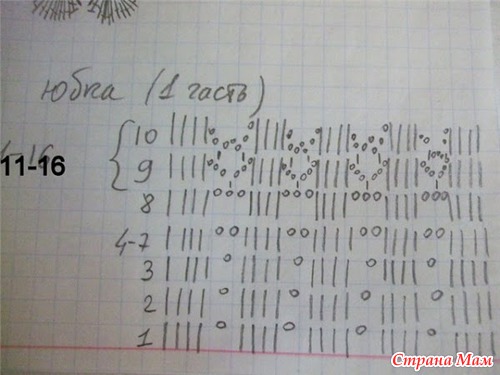 юбка (1 часть)
10
11-16
9
8
4-7
3
2
1
Страна Мам